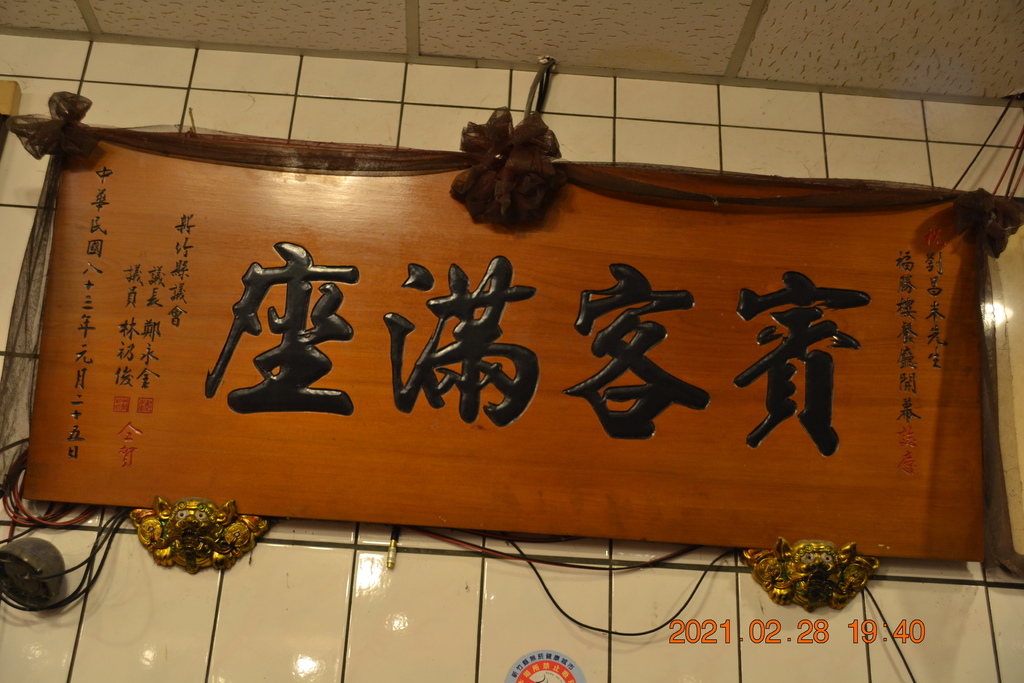 祝
劉昌來先生
福勝樓餐廳開幕誌慶
賓客滿座
新竹縣議會
議長 鄭永金
議員 林礽俊
仝賀
中華民國八十三年元月二十五日
2021.02.28 19:40